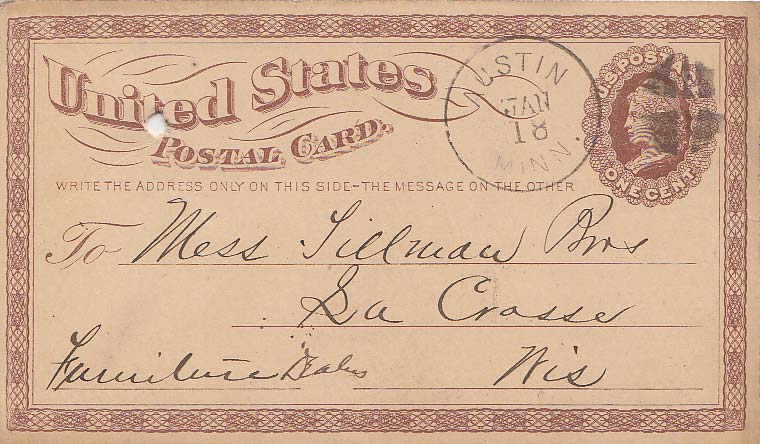 United States
POSTAL CARD.
WRITE THE ADDRESS ONLY ON THIS SIDE-THE MESSAGE ON THE OTHER
AUSTIN
JAN
18
MINN.
U.S. POSTAGE
ONE CENT
To Mess Tillman Bros
La Crosse
Furniture Dealers Wis